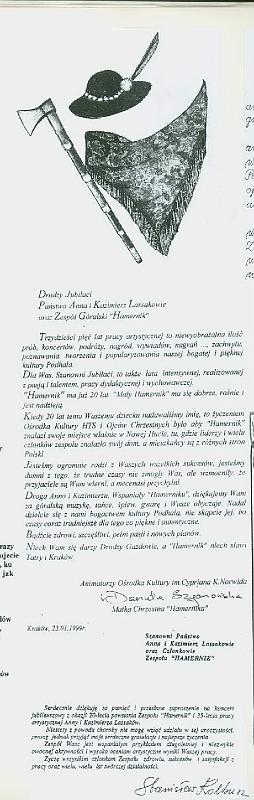 Drodzy Jubilaci
Państwo Anna i Kazimierz Lassakowie
oraz Zespół Góralski "Hamernik"
Trzydzieści pięć lat pracy artystycznej to niewyobrażalna ilość
prób, koncertów, podróży, nagród, wywiadów, nagrań ..., zachwytu,
poznawania tworzenia i popularyzowania naszej bogatej i pięknej
kultury Podhala.
Dla Was, Szanowni Jubilaci, to także lata intensywnej, realizowanej
z pasją i talentem, pracy dydaktycznej i wychowawczej.
"Hamernik" ma już 20 lat. "Mały Hamernik" ma się dobrze, rośnie i
jest nadzieją.
Kiedy 20 lat temu Waszemu dziecku nadawaliśmy imię, to życzeniem
Ośrodka Kultury HTS i Ojców Chrzestnych było aby "Hamernik"
znalazł swoje miejsce właśnie w Nowej Hucie, tu, gdzie liderzy i wielu
członków zespołu znalazło swój dom, a mieszkańcy są z różnych stron
Polski.
Jesteśmy ogromnie radzi z Waszych wszelkich sukcesów, jesteśmy
dumni z tego, że trudne czasy nie zmogły Was, ale wzmocniły, że
przyjaciele są Wam wierni, a mecenasi przychylni.
Droga Anno i Kazimierzu, Wspaniały "Hamerniku", dziękujemy Wam
za góralską muzykę, tańce, śpiew, gwarę i Wasze obyczaje. Nadal
dzielcie się z nami bogactwem kultury Podhala, nie skąpcie jej, bo
czasy coraz trudniejsze dla tego co piękne i autentyczne.
Bądźcie zdrowi, szczęśliwi, pełni pasji i nowych planów.
Niech Wam się darzy Drodzy Gazdowie, a "Hamernik" niech sławi
Tatry i Kraków.
Animatorzy Ośrodka Kultury im. Cypriana K. Norwida
Danuta Szymonowska
Matka Chrzestna "Hamernika"
Kraków, 23.01.1999r.
Szanowni Państwo
Anna i Kazimierz Lassakowie
oraz Członkowie
Zespołu "HAMERNIK"
Serdecznie dziękuję za pamięć i przesłane zaproszenie na koncert
jubileuszowy z okazji 20-lecia powstania Zespołu "Hamernik" i 35-lecia pracy
artystycznej Anny i Kazimierza Lassaków.
Niestety z powodu choroby nie mogę wziąć udziału w tej uroczystości,
proszę jednak przyjąć moje serdeczne gratulacje i najlepsze życzenia.
Zespół Wasz jest wspaniałym przykładem długoletniej i niezwykle
owocnej aktywności i wysoko oceniam artystyczne wyniki Waszej pracy.
Życzę wszystkim członkom Zespołu zdrowia, sukcesów i satysfakcji z
pracy oraz wielu, wielu lat twórczej działalności.
Stanisław